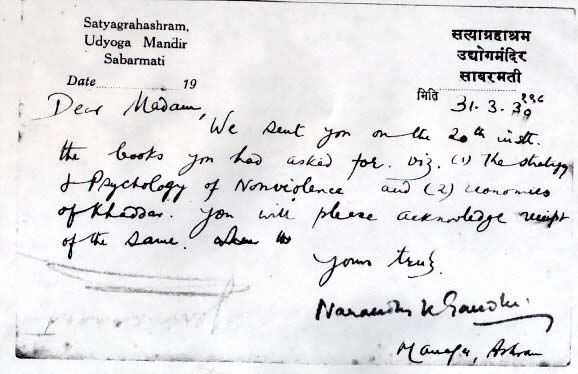 Satyagrahashram,
Udyoga Mandir
Sabarmati
Date 19
सत्याग्रहाश्रम
उद्योगमंदिर
साबरमती
मिति 31.3.30
Dear Madam,
We sent you on the 20th inst.
the books you had asked for. viz. (1) The strategy
& Psychology of Nonviolence and (2) economics
of Khaddar. You will please acknowledge receipt
of the same.
Yours truly
Narandas K Gandhi.
Manager, Ashram